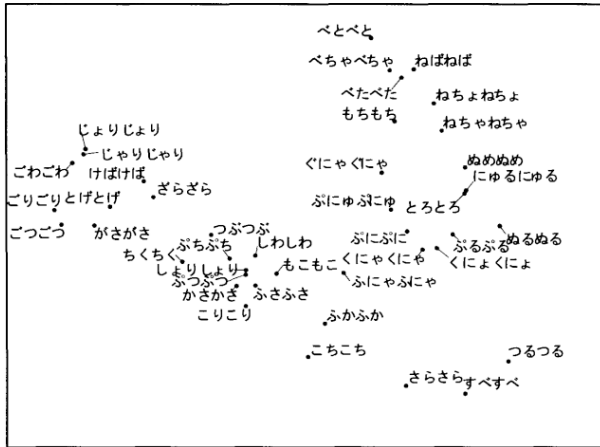 べとべと
べちゃべちゃ
ねばねば
べたべた
ねちょねちょ
もちもち
ねちゃねちゃ
じょりじょり
じゃりじゃり
ごわごわ
けばけば
ぐにゃぐにゃ
ぬめぬめ
にゅるにゅる
ざらざら
ごりごり
とげとげ
ぷにゅぷにゅ
とろとろ
ごつごつ
がさがさ
つぶつぶ
ぷにぷに
ぷるぷる
ぬるぬる
ちくちく
ぷちぷち
しわしわ
くにゃくにゃ
くにょくにょ
しょりしょり
もこもこ
ぷつぷつ
ふにゃふにゃ
かさかさ
ふさふさ
こりこり
ふかふか
こちこち
つるつる
さらさら
すべすべ